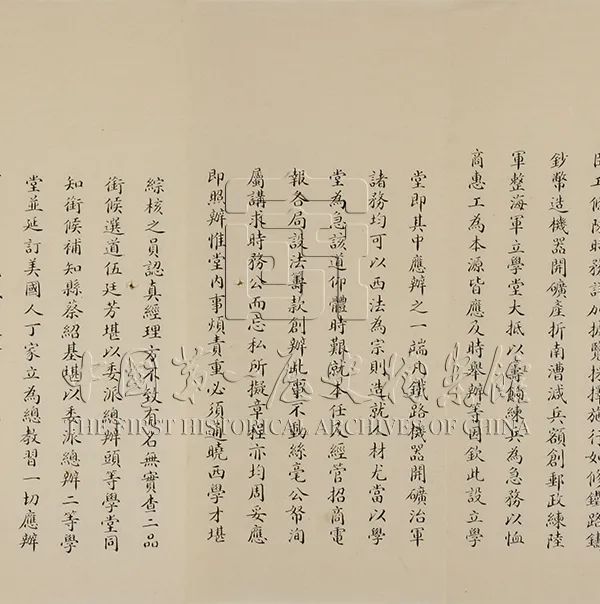 臣工條陳時務詳加披覽採擇施行如修鐵路鑄
鈔幣造機器開礦產折南漕減兵額創郵政練陸
軍整海軍立學堂大抵以籌餉練兵為急務以恤
商惠工為本源皆應及時舉辦等因欽此設立學
堂即其中應辦之一端凡鐵路機器開礦治軍
諸務均可以西法為宗則造就人材尤當以學
堂為急該道仰體時艱就本任久經管招商電
報各局設法籌款創辦此事不動絲毫公帑洵
屬講求時務公而忘私所擬章程亦均周妥應
即照辦惟堂內事煩責重必須通曉西學才堪
綜核之員認真經理方不致有名無實查二品
銜候選道伍廷芳堪以委派總辦頭等學堂同
知銜候補知縣蔡紹基堪以委派總辦二等學
堂並延訂美國人丁家立為總教習一切應辦
中國第一歷史檔案館
THE FIRST HISTORICAL ARCHIVES OF CHINA